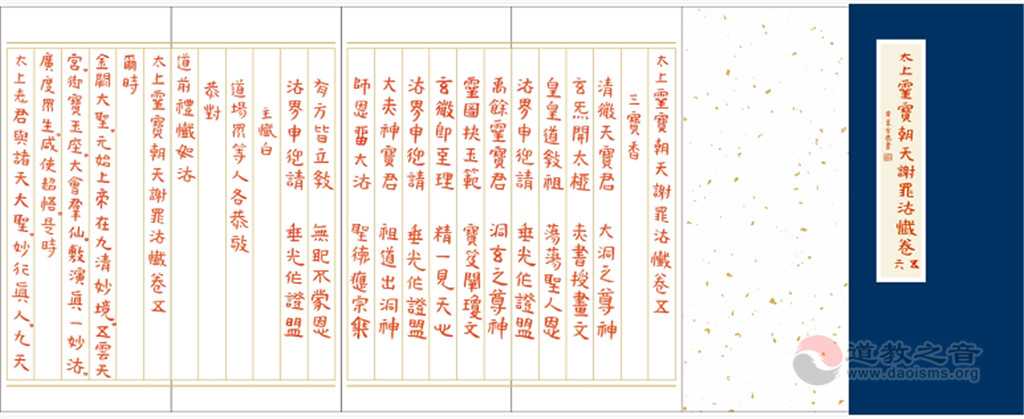 太上靈寶朝天謝罪法懺卷五六
太上靈寶朝天謝罪法懺卷五
三寶香
清微天寶君 大洞之尊神
玄炁開太極 天書授畫文
皇皇道敎祖 蕩蕩聖人恩
法界申迎請 垂光作證盟
禹餘靈寶君 洞玄之尊神
靈圖抉玉範 寶笈闡瓊文
玄微即至理 精一見天心
法界申迎請 垂光作證盟
大赤神寶君 祖道出洞神
師恩留大法 聖德應宗
有方皆立敎 無不蒙恩
法界申迎請 垂光作證盟
主懺白
道場眾等人各恭敬
恭對
道前禮懺如法
太上靈寶朝天謝罪法懺卷五
爾時
金闕大聖。元始上帝在九清妙境。五雲天
宮。御寶玉座。大會羣仙。敷演眞一妙法。
廣度眾生。咸使超悟。是時
太上老君與諸天大聖。妙行眞人。九天
道教之音
www.daoisms.org